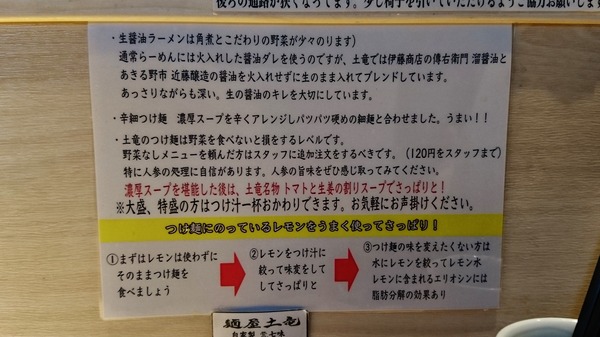 後ろの通路が狭くなってます。少し椅子を引いていただけるようご協力お願いします
・生醤油ラーメンは角煮とこだわりの野菜が少々のります)
通常らーめんには火入れした醤油ダレを使うのですが、土竜では伊藤商店の傳右衛門 溜醤油と
あきる野市 近藤醸造の醤油を火入れせずに生のまま入れてブレンドしています。
あっさりながらも深い。生の醤油のキレを大切にしています。
・辛細つけ麺 濃厚スープを辛くアレンジしパツパツ硬めの細麺と合わせました。うまい！！
・土竜のつけ麺は野菜を食べないと損をするレベルです。
野菜なしメニューを頼んだ方はスタッフに追加注文をするべきです。(120円をスタッフまで)
特に人参の処理に自信があります。人参の旨味をぜひ感じ取ってみてください。
濃厚スープを堪能した後は、土竜名物 トマトと生姜の割りスープでさっぱりと！
※大盛、特盛の方はつけ汁一杯おかわりできます。お気軽にお声掛けください。
つけ麺にのっているレモンをうまく使ってさっぱり！
①まずはレモンは使わずに
そのままつけ麺を
食べましょう
②レモンをつけ汁に
絞って味変をして
してさっぱりと
③つけ麺の味を変えたくない方は
水にレモンを絞ってレモン水
レモンに含まれるエリオシンには
脂肪分解の効果あり
麺屋土竜
自家製 芸七味